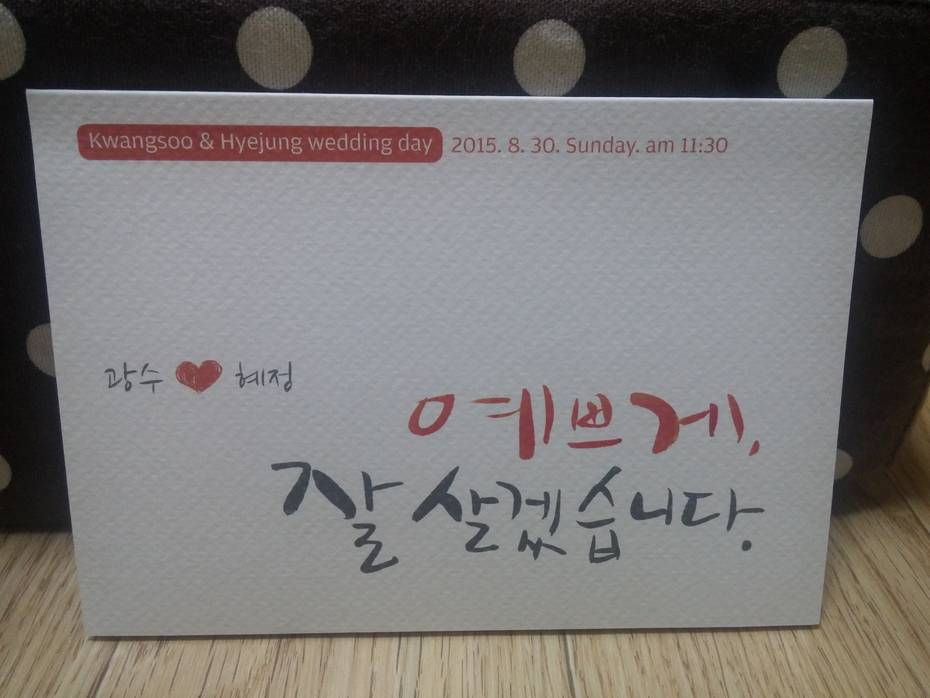 Kwangsoo & Hyejung wedding day 2015. 8. 30. Sunday. am 11:30
광수 혜정
예쁘게,
잘 살겠습니다.